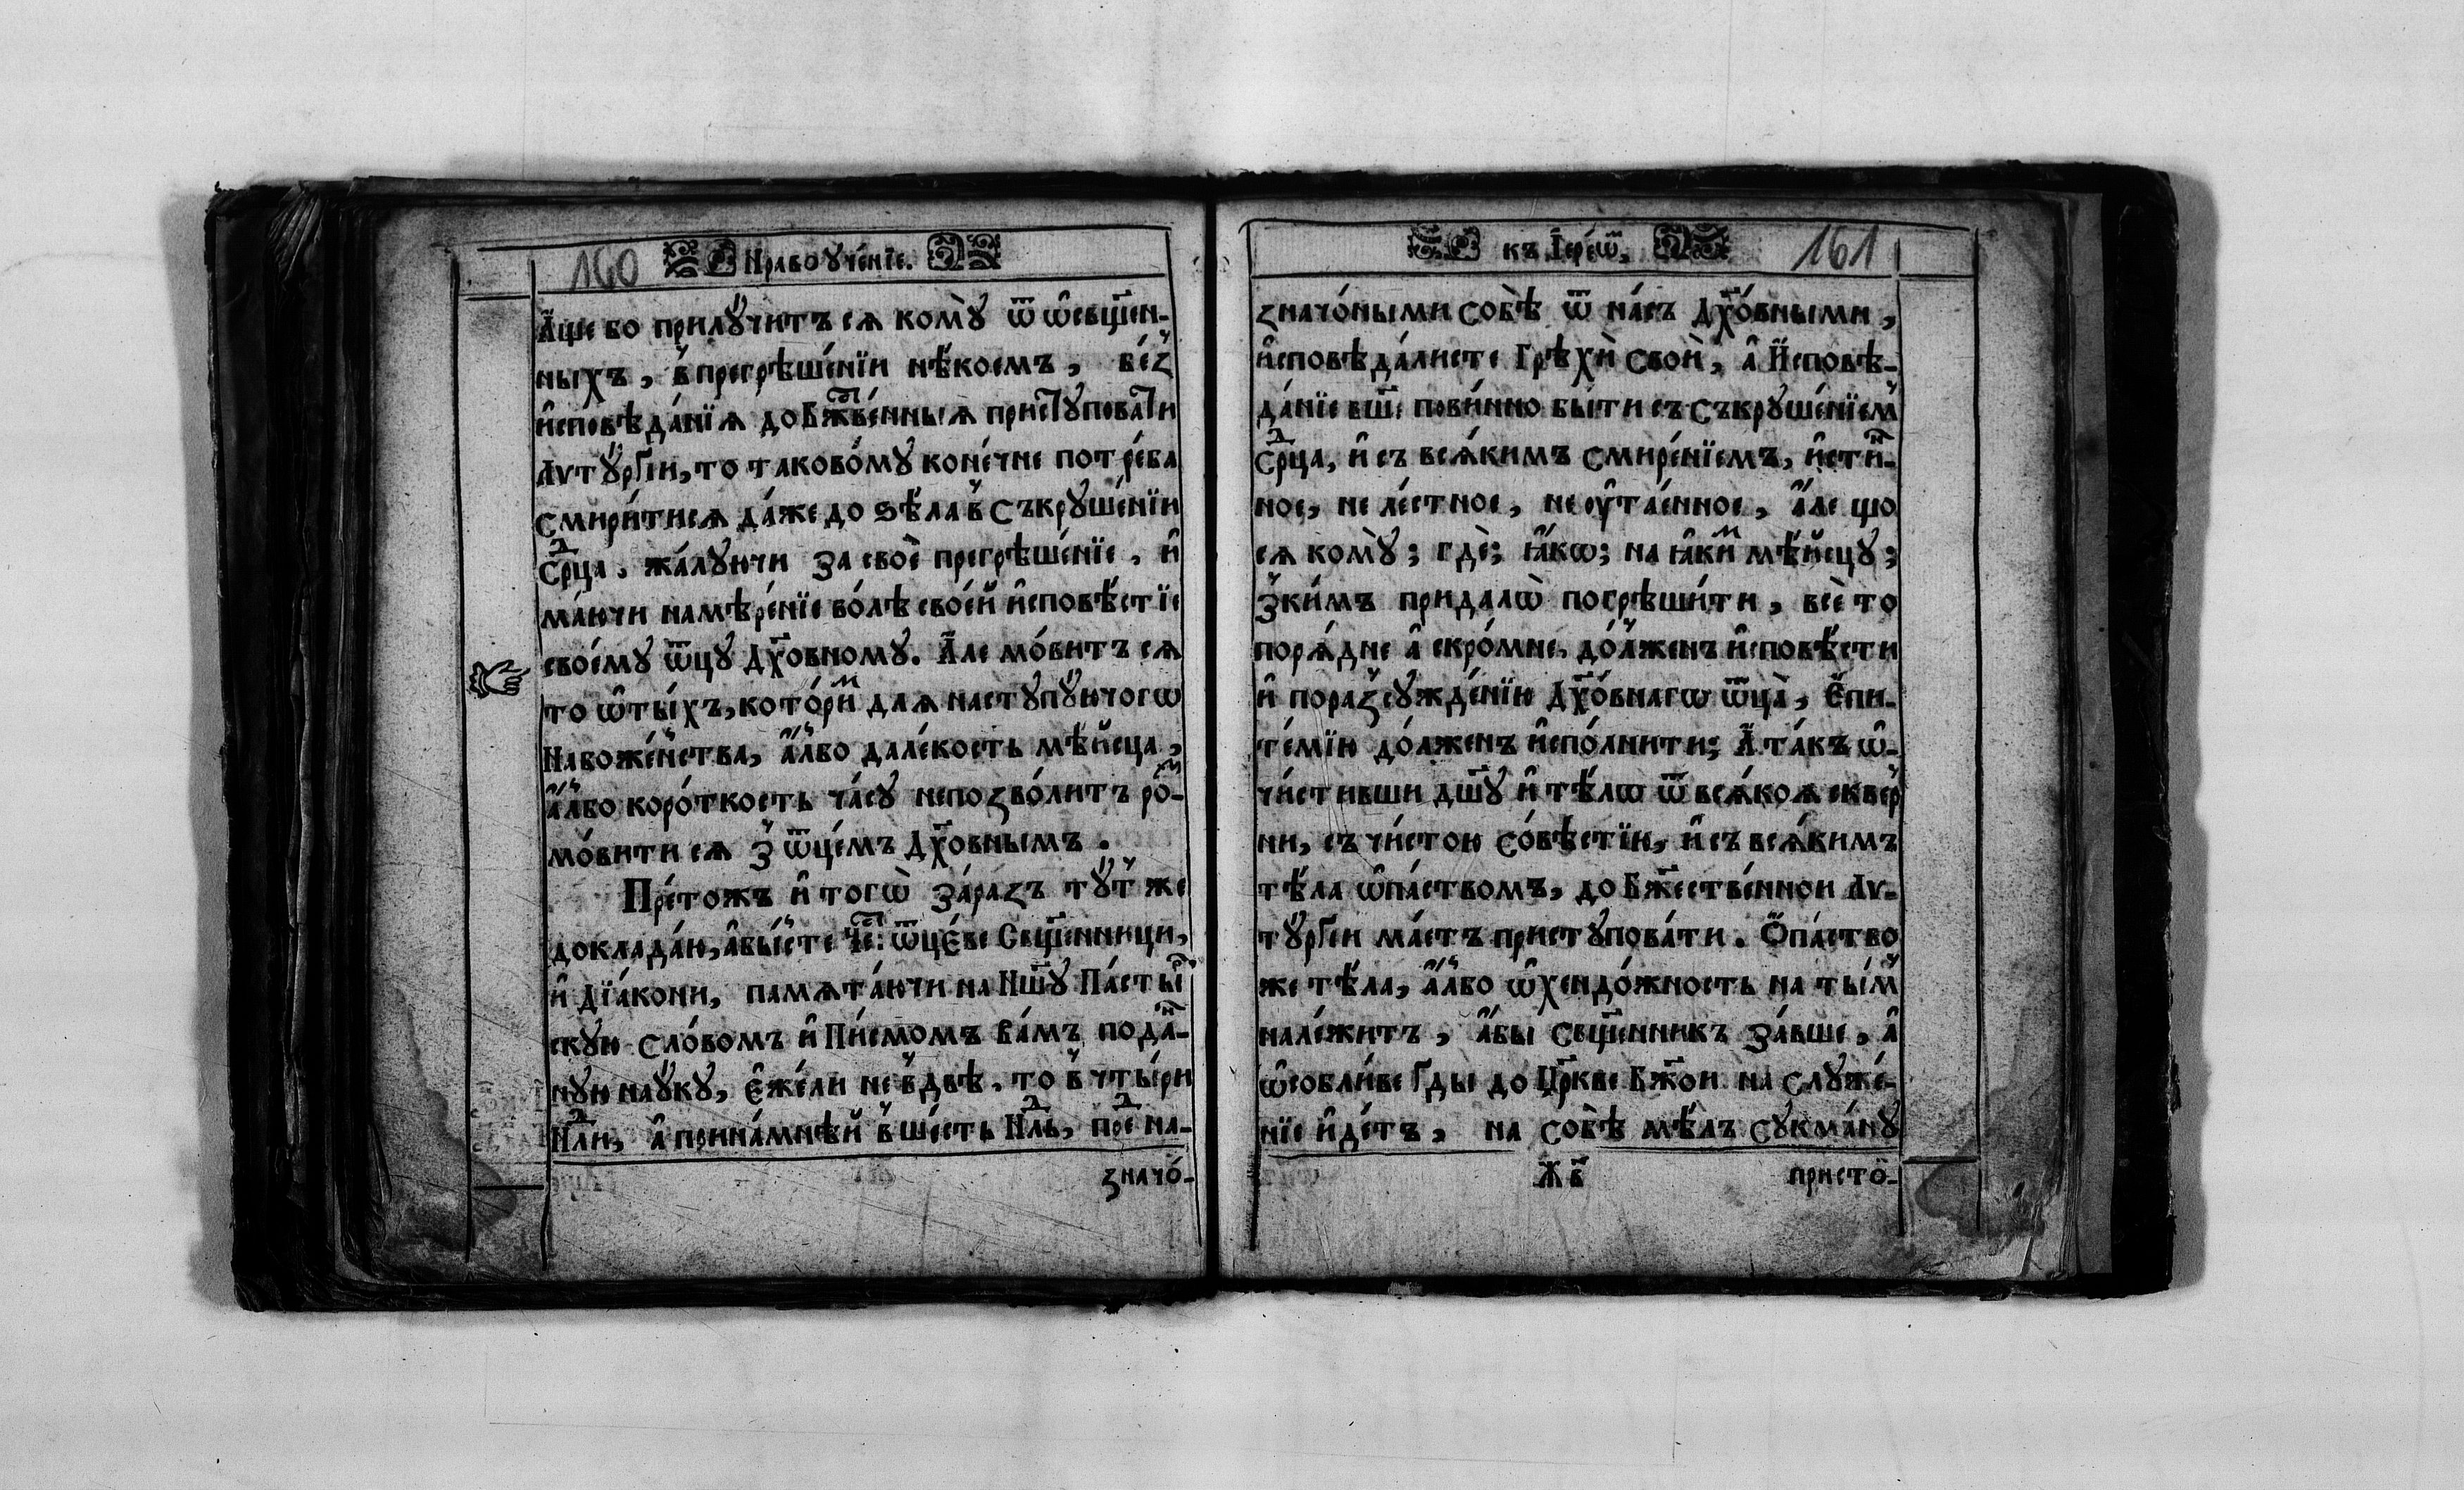 160 Нравоꙋче́нїе.
А҆́ще бо прилꙋ́читъ сѧ комꙋ̀ ѿ ѡ҆свщ҃ен-
ныхъ, в̾прегрѣше́нїи нѣ́коемъ, бе́з̾
и҆сповѣда́нїѧ до Бж҃тве́нныѧ пристꙋповати
Лѵтꙋ́рґїи, то таково́мꙋ коне́чне потре́ба
смири́тисѧ да́же до ѕѣ́ла в̾ съкрꙋше́нїи
Срⷣца. жа́лꙋючи за своѐ прегрѣше́нїе, и҆
ма́ючи намѣре́нїе во́лѣ свое́й и҆сповѣ́стїе
своемꙋ̀ ѿцꙋ̀ Дх҃о́вномꙋ. А҆́ле мо́витъ сѧ
то ѡ҆ ты́хъ, кото́риⷨ длѧ настꙋпꙋ́ючогѡ
Набоже́н̾ства, а҆́л̾бо дале́кость мѣ́йсца,
а҆́л̾бо коро́ткость ча́сꙋ непозво́литъ роⷥ-
мо́вити сѧ з̾ ѿце́мъ Дх҃о́внымъ.
Пре́тожъ и҆ тогѡ̀ за́разъ тꙋ́т̾ же
доклада́ю, а҆бы́сте Че҃: ѿцЄве Свщ҃енници,
и҆ Дїа́кони, памѧта́ючи на Нш҃ꙋ Па́стыⷬ
скꙋю сло́вомъ и҆ Писмо́мъ ва́мъ подаⷩ-
нꙋю наꙋ́кꙋ, є҆́жели не в̾ двѣ̀, то в̾ чты́ри
Нлⷣи, а҆ принамнѣ́й в̾ ше́сть Нлⷣь, преⷣ на-
значо́-
къ І҆ере́ѡⷨ. 161
значо́ными собѣ̀ ѿ на́съ Дх҃о́вными,
и҆сповѣда́листе Грѣхѝ своѝ, а҆ И҆сповѣ-
да́нїе вш҃е пови́нно бы́ти съ съкрꙋше́нїем̾
Срⷣца, и҆ съ всѧ́кимъ смире́нїемъ, и҆стиⷩ-
ное, не ле́стное, не ᲂу҆тае́нное, а҆́ле що
сѧ комꙋ̀; гдѐ; ꙗ҆́кѡ; на ꙗ҆киⷨ мѣ́йсцꙋ;
З̾ ки́мъ придалѡ̀ погрѣши́ти, всѐ то
порѧ́дне а҆ скро́мне, до́л̾женъ и҆сповѣ́сти
и҆ пораз̾сꙋжде́нїю Дх҃о́внагѡ ѿца̀, Є҆пи-
те́мїю до́лженъ и҆спо́лнити; А҆ та́къ ѡ҆-
чи́стивши дш҃ꙋ и҆ тѣ́лѡ ѿ всѧ́коѧ сквер̾
ни, съ чи́стою со́вѣстїю, и҆ съ всѧ́кимъ
тѣ́ла ѡ҆па́ствомъ, до Бж҃естве́нной Лѵ-
тꙋ́рґеи ма́етъ пристꙋпова́ти. Ѻ҆па́ство
же тѣ́ла, а҆́л̾бо ѡ҆хендо́жность на ты́м̾
нале́житъ, а҆́бы Свщ҃енникъ за́вше, а҆
ѡ҆собли́ве ґды до Цр҃кве Бж҃ои на слꙋже́-
нїе и҆де́тъ, на собѣ̀ мѣ́лъ сꙋкма́нꙋ
Ж҃ в҃ присто́-